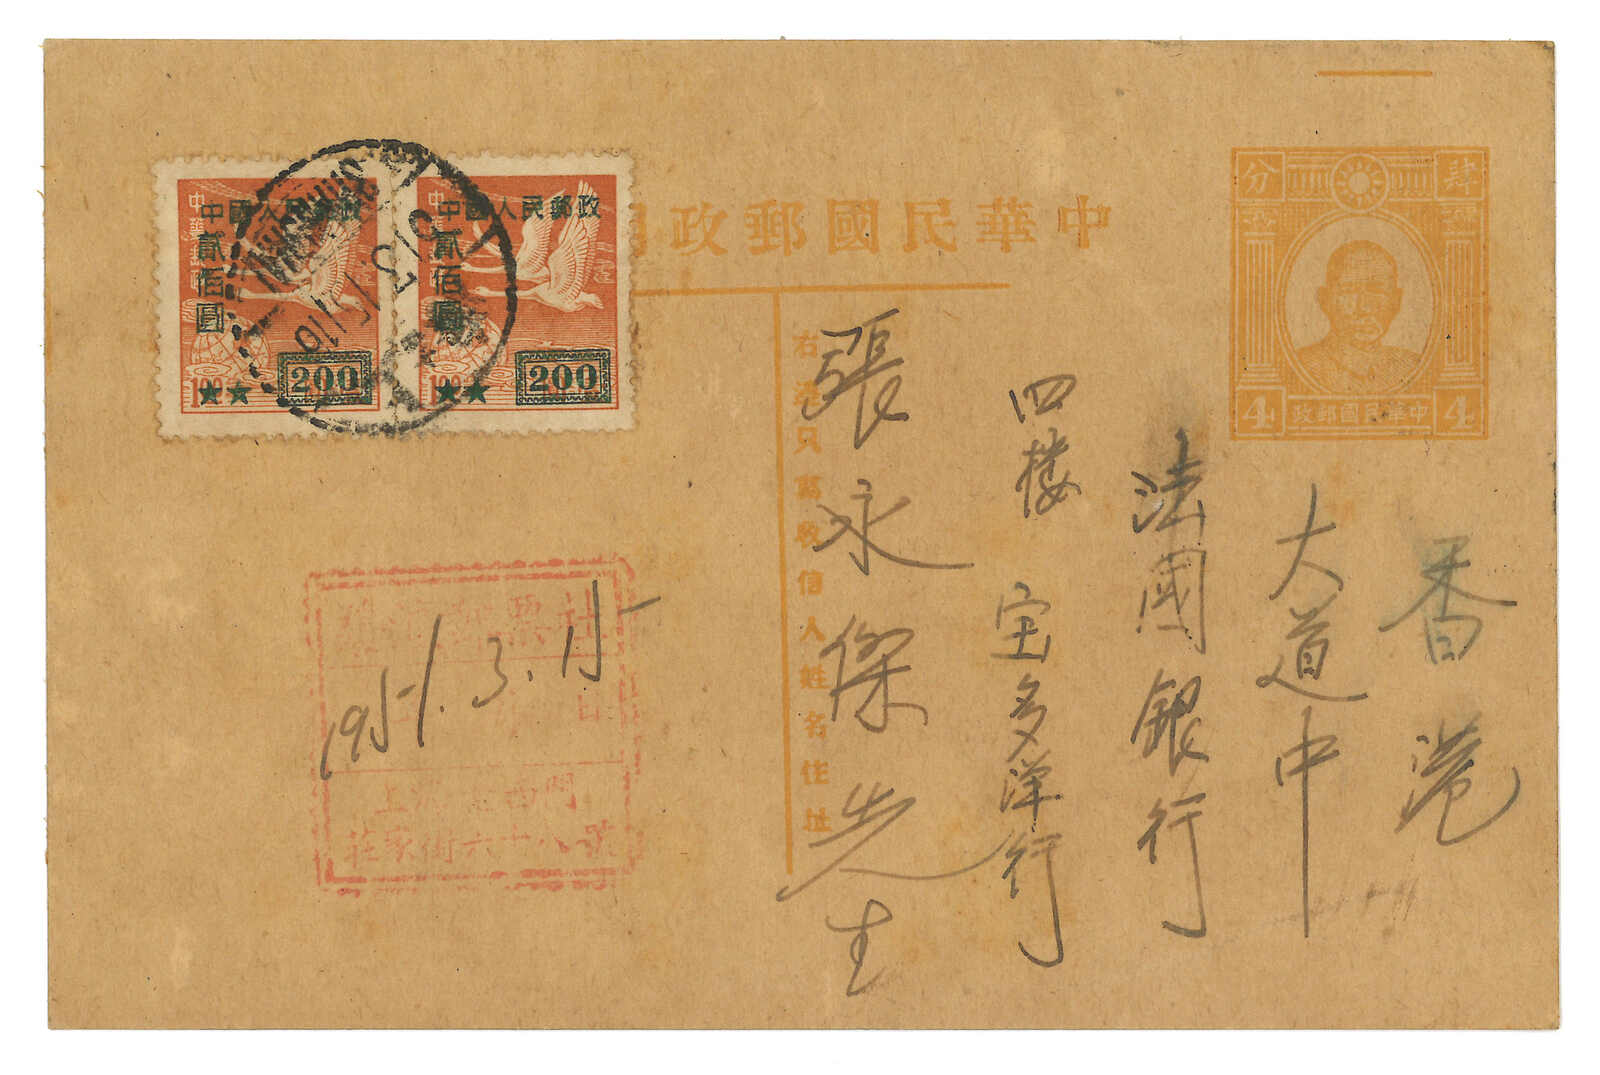 中華民國郵政
分 肆
4 中華民國郵政 4
香港
大道中
法國銀行
四楼 宝多洋行
張永傑先生
右邊只寫收信人姓名住址
中國人民郵政
貳佰圓
200
中國人民郵政
貳佰圓
200
SHANGHAI
1951.3.15
上海老西門
莊家街六十八號